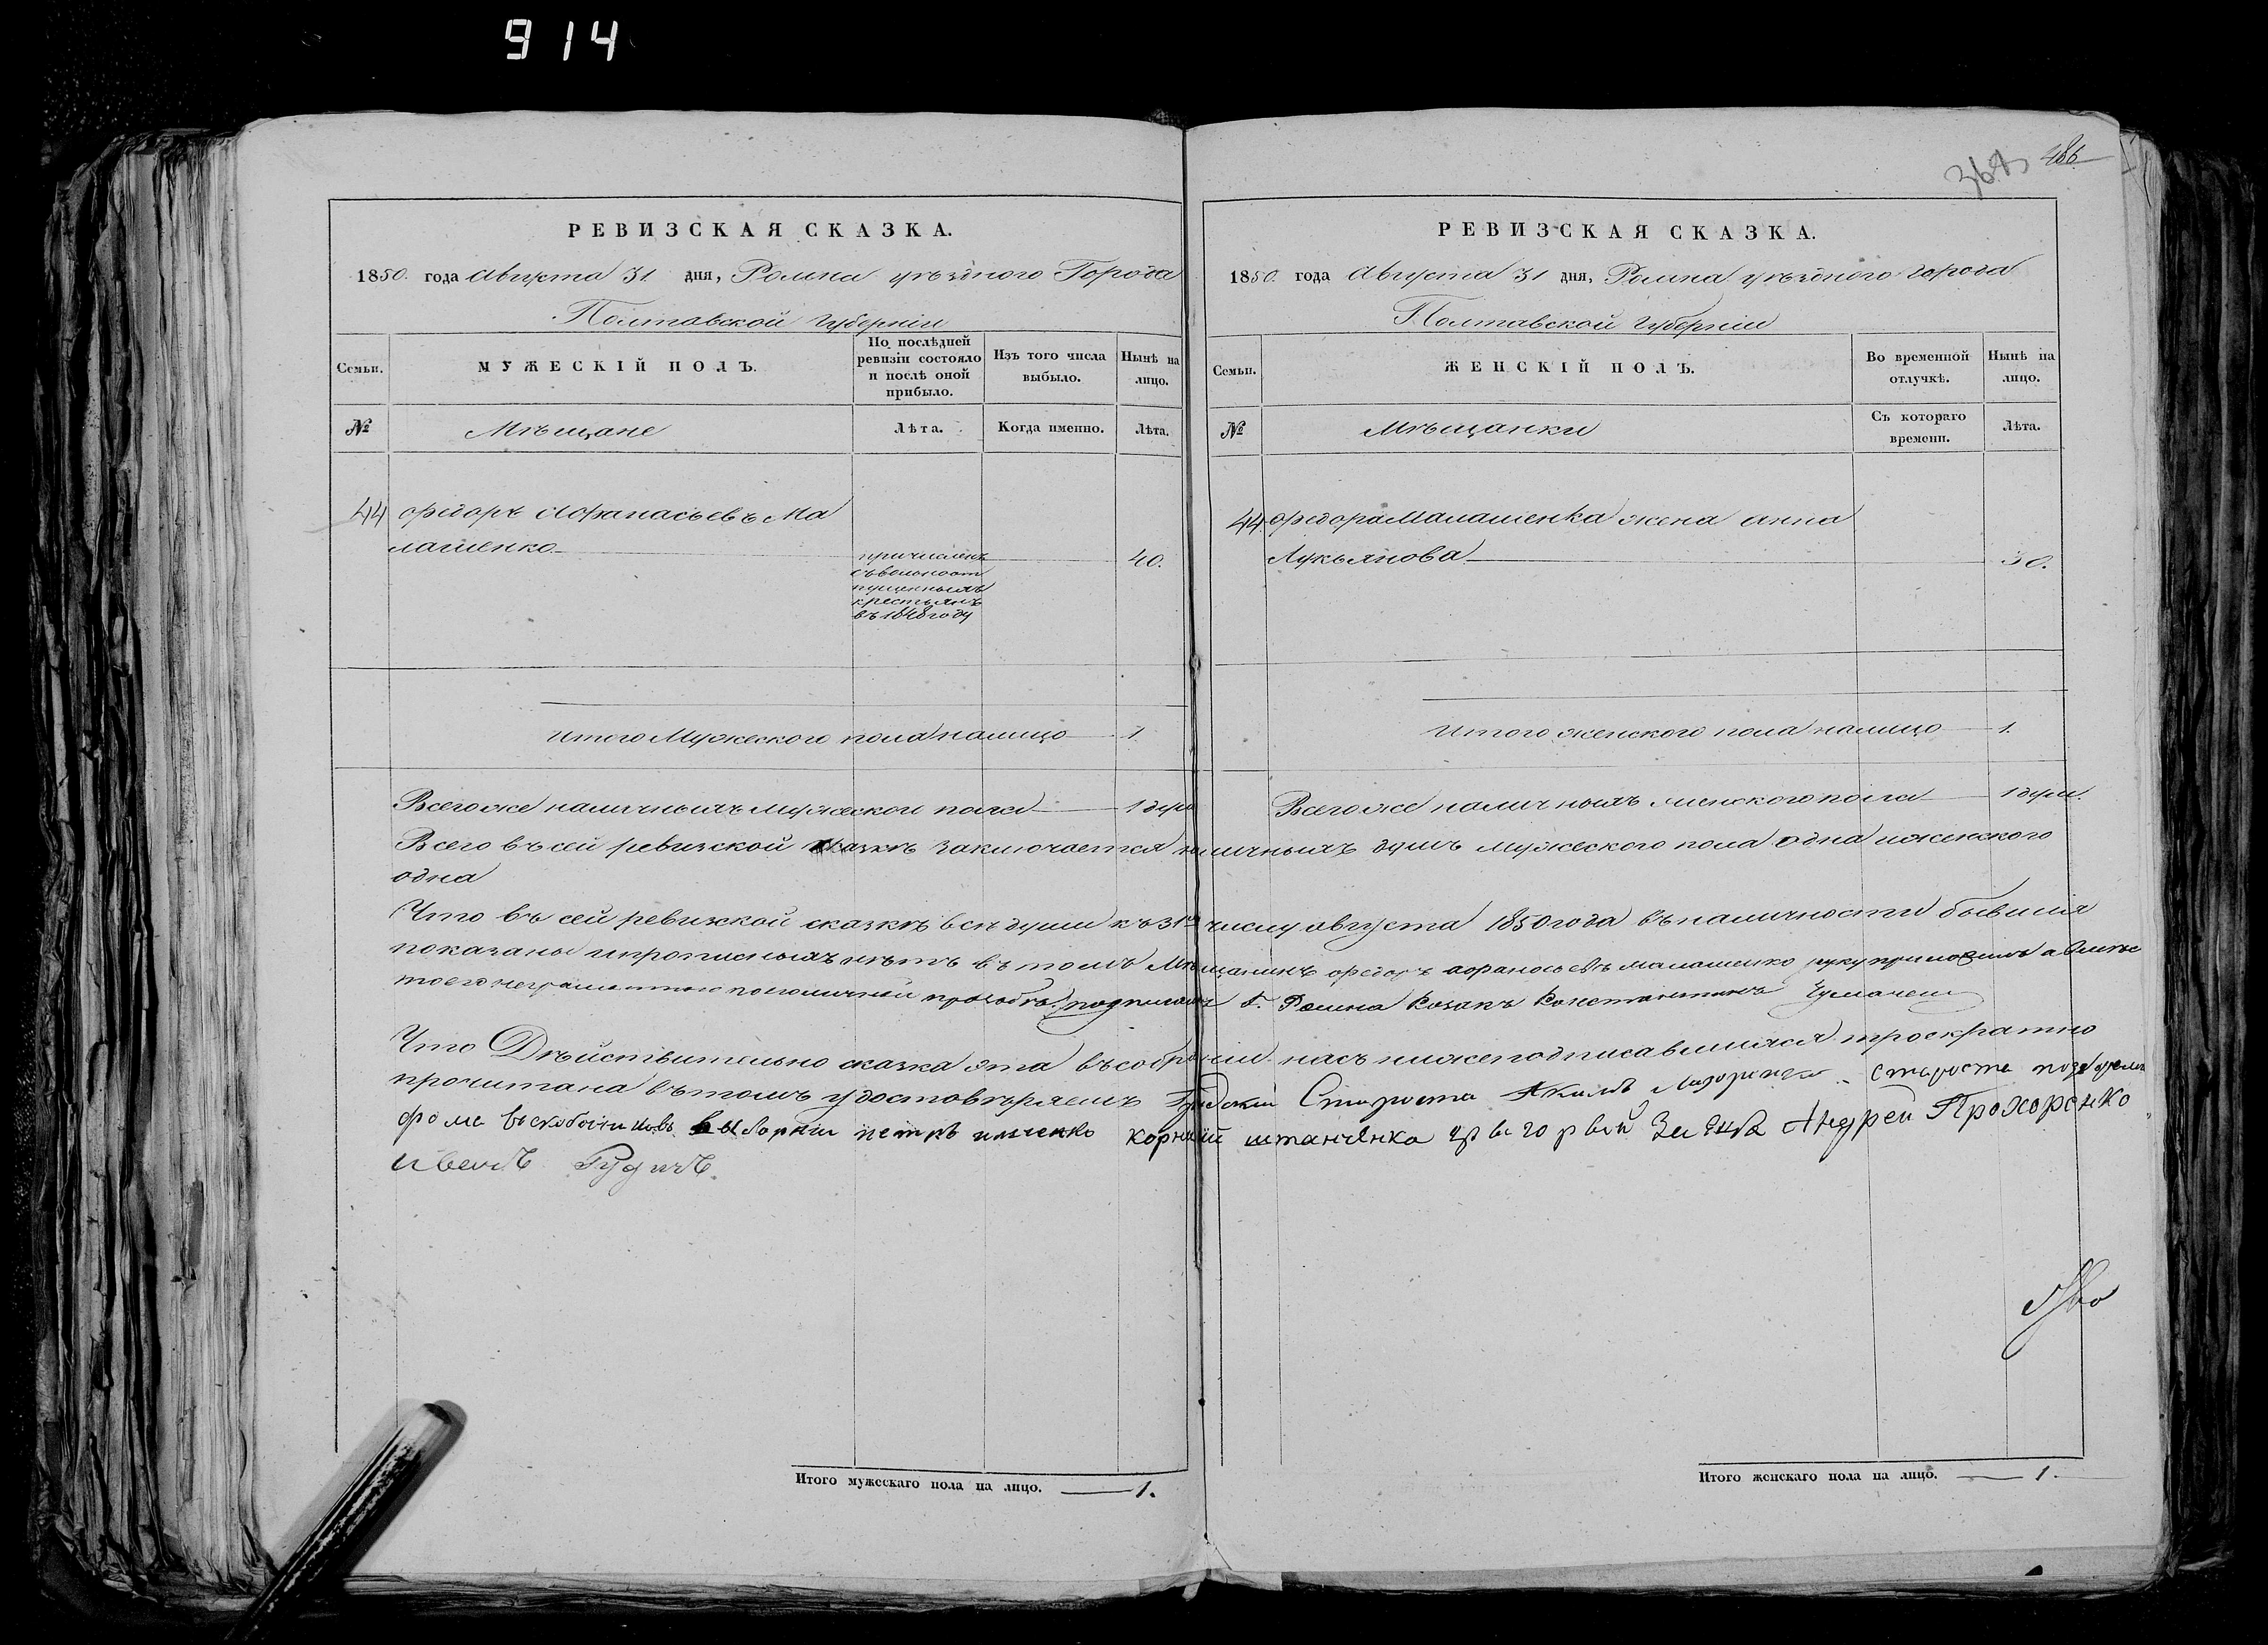 914
486
РЕВИЗСКАЯ СКАЗКА.
1850. года Августа 31. дня, Ромна уѣзднаго Города
Полтавской Губерніи
Семьи.
МУЖЕСКІЙ ПОЛЪ.
По послѣдней ревизіи состояло и послѣ оной прибыло.
Изъ того числа выбыло.
Нынѣ на лицо.
№
Мѣщане
Лѣта.
Когда именно.
Лѣта.
44 Федоръ Афанасьевъ Ма
лашенко
причисленъ
съ вольноот
пущенныхъ
крестьянъ
въ 1848 году
40.
Итого Мужескаго пола налицо 1
Всего же наличныхъ мужескои пола 1 душ
РЕВИЗСКАЯ СКАЗКА.
1850. года Августа 31 дня, Ромна уѣзднаго города
Полтавской Губерніи
Семьи.
ЖЕНСКІЙ ПОЛЪ.
Во временной отлучкѣ.
Нынѣ на лицо.
№
Мѣщанки
Съ котораго времени.
Лѣта.
44. Федора Малашенка жена Анна
Лукьянова
30.
Итого женского пола налицо 1.
Всего же наличныхъ женского пола 1 душ.
Всего въ сей ревизской сказкѣ заключается наличныхъ душъ мужеского пола одна и женского
одна
Что въ сей ревизкой сказкѣ всѣ души къ 31му числу августа 1850 года въ наличности бывшія
показаны и прописныхъ нѣтъ въ томъ Мѣщанинъ Федоръ Афаносьевъ Малашенко руку приложилъ а вместо
его неграмотнаго по его личной прозбѣ подписался Г. Ромна Козакъ Константинъ Чумаченко
Что Дѣйствительно сказка эта въ собраніи насъ нижеподписавшихся троекратно
прочитана въ томъ удостовѣряемъ Градскій Староста Акимъ Лазоренко. Староста
Фома выборніи петръ Корнѣй штанченко Андрей Прохоренко
Иванъ Рудичъ.
Итого мужескаго пола на лицо. 1.
Итого женскаго пола на лицо. 1.